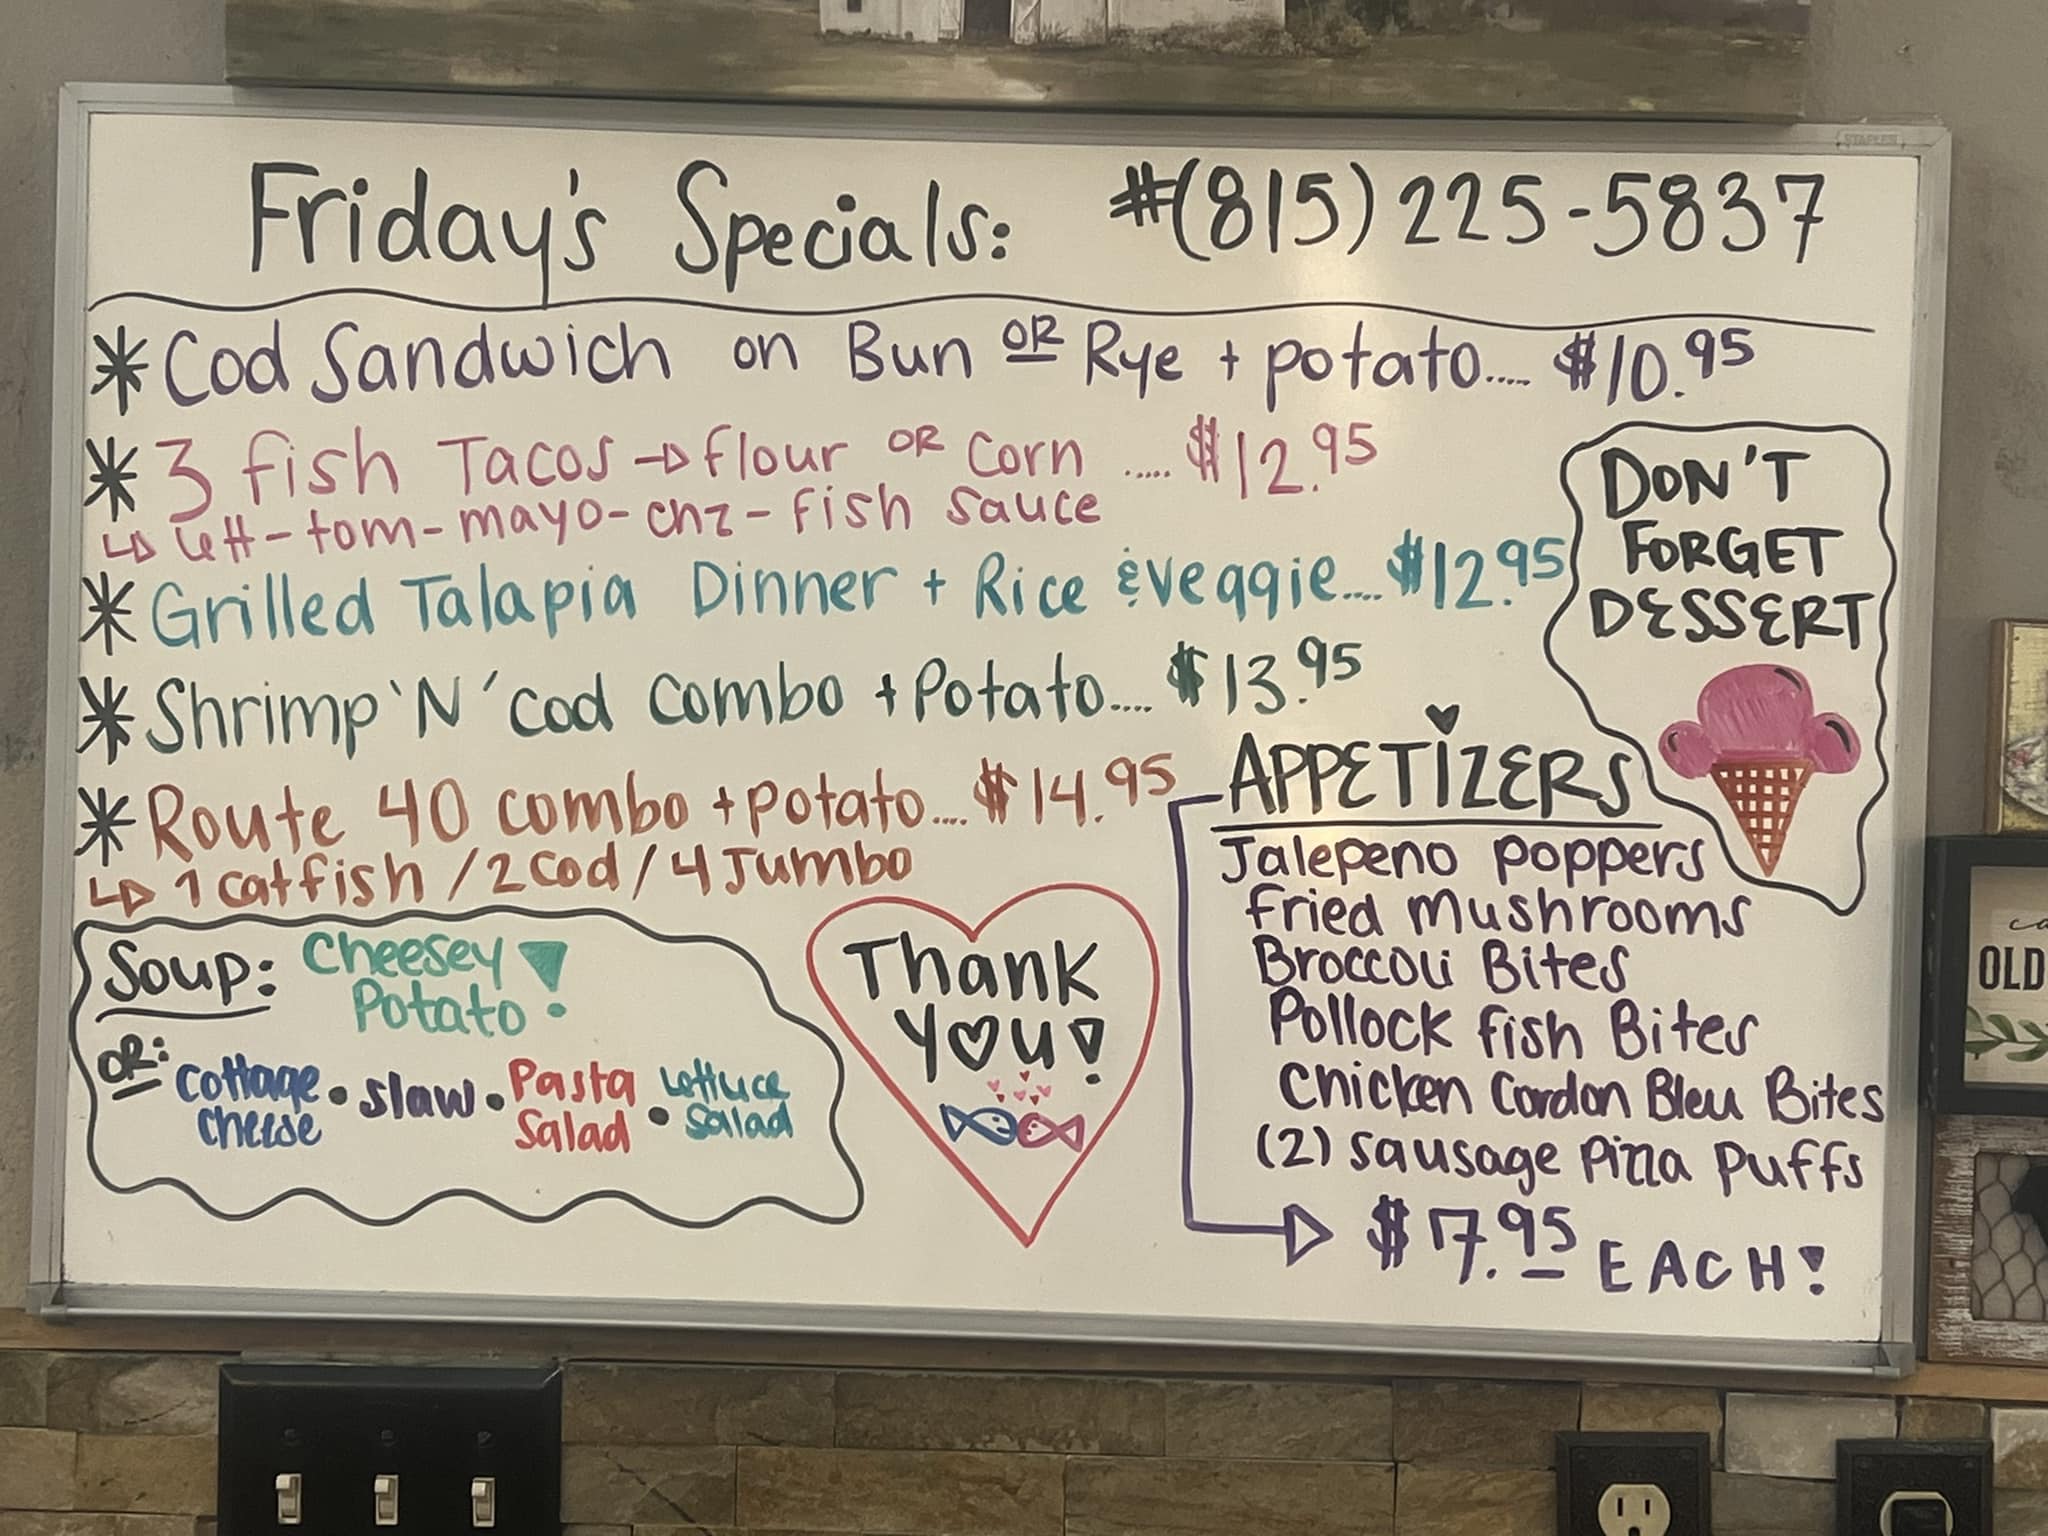 STAPLES
Friday's Specials: #(815) 225-5837
* Cod Sandwich on Bun OR Rye + potato..... $10.95
* 3 fish Tacos → flour OR corn ..... $12.95
↳ lett-tom-mayo-chz-fish sauce
* Grilled Talapia Dinner + Rice & veggie.... $12.95
* Shrimp 'N' cod combo + Potato.... $13.95
* Route 40 combo + potato.... $14.95
↳ 1 catfish / 2 cod / 4 Jumbo
DON'T
FORGET
DESSERT
Soup: Cheesey
Potato!
OR: cottage cheese • slaw • Pasta Salad • lettuce salad
Thank
you!
APPETIZERS
Jalepeno poppers
Fried mushrooms
Broccoli Bites
Pollock fish Bites
Chicken Cordon Bleu Bites
(2) sausage Pizza Puffs
→ $7.95 EACH!
OLD